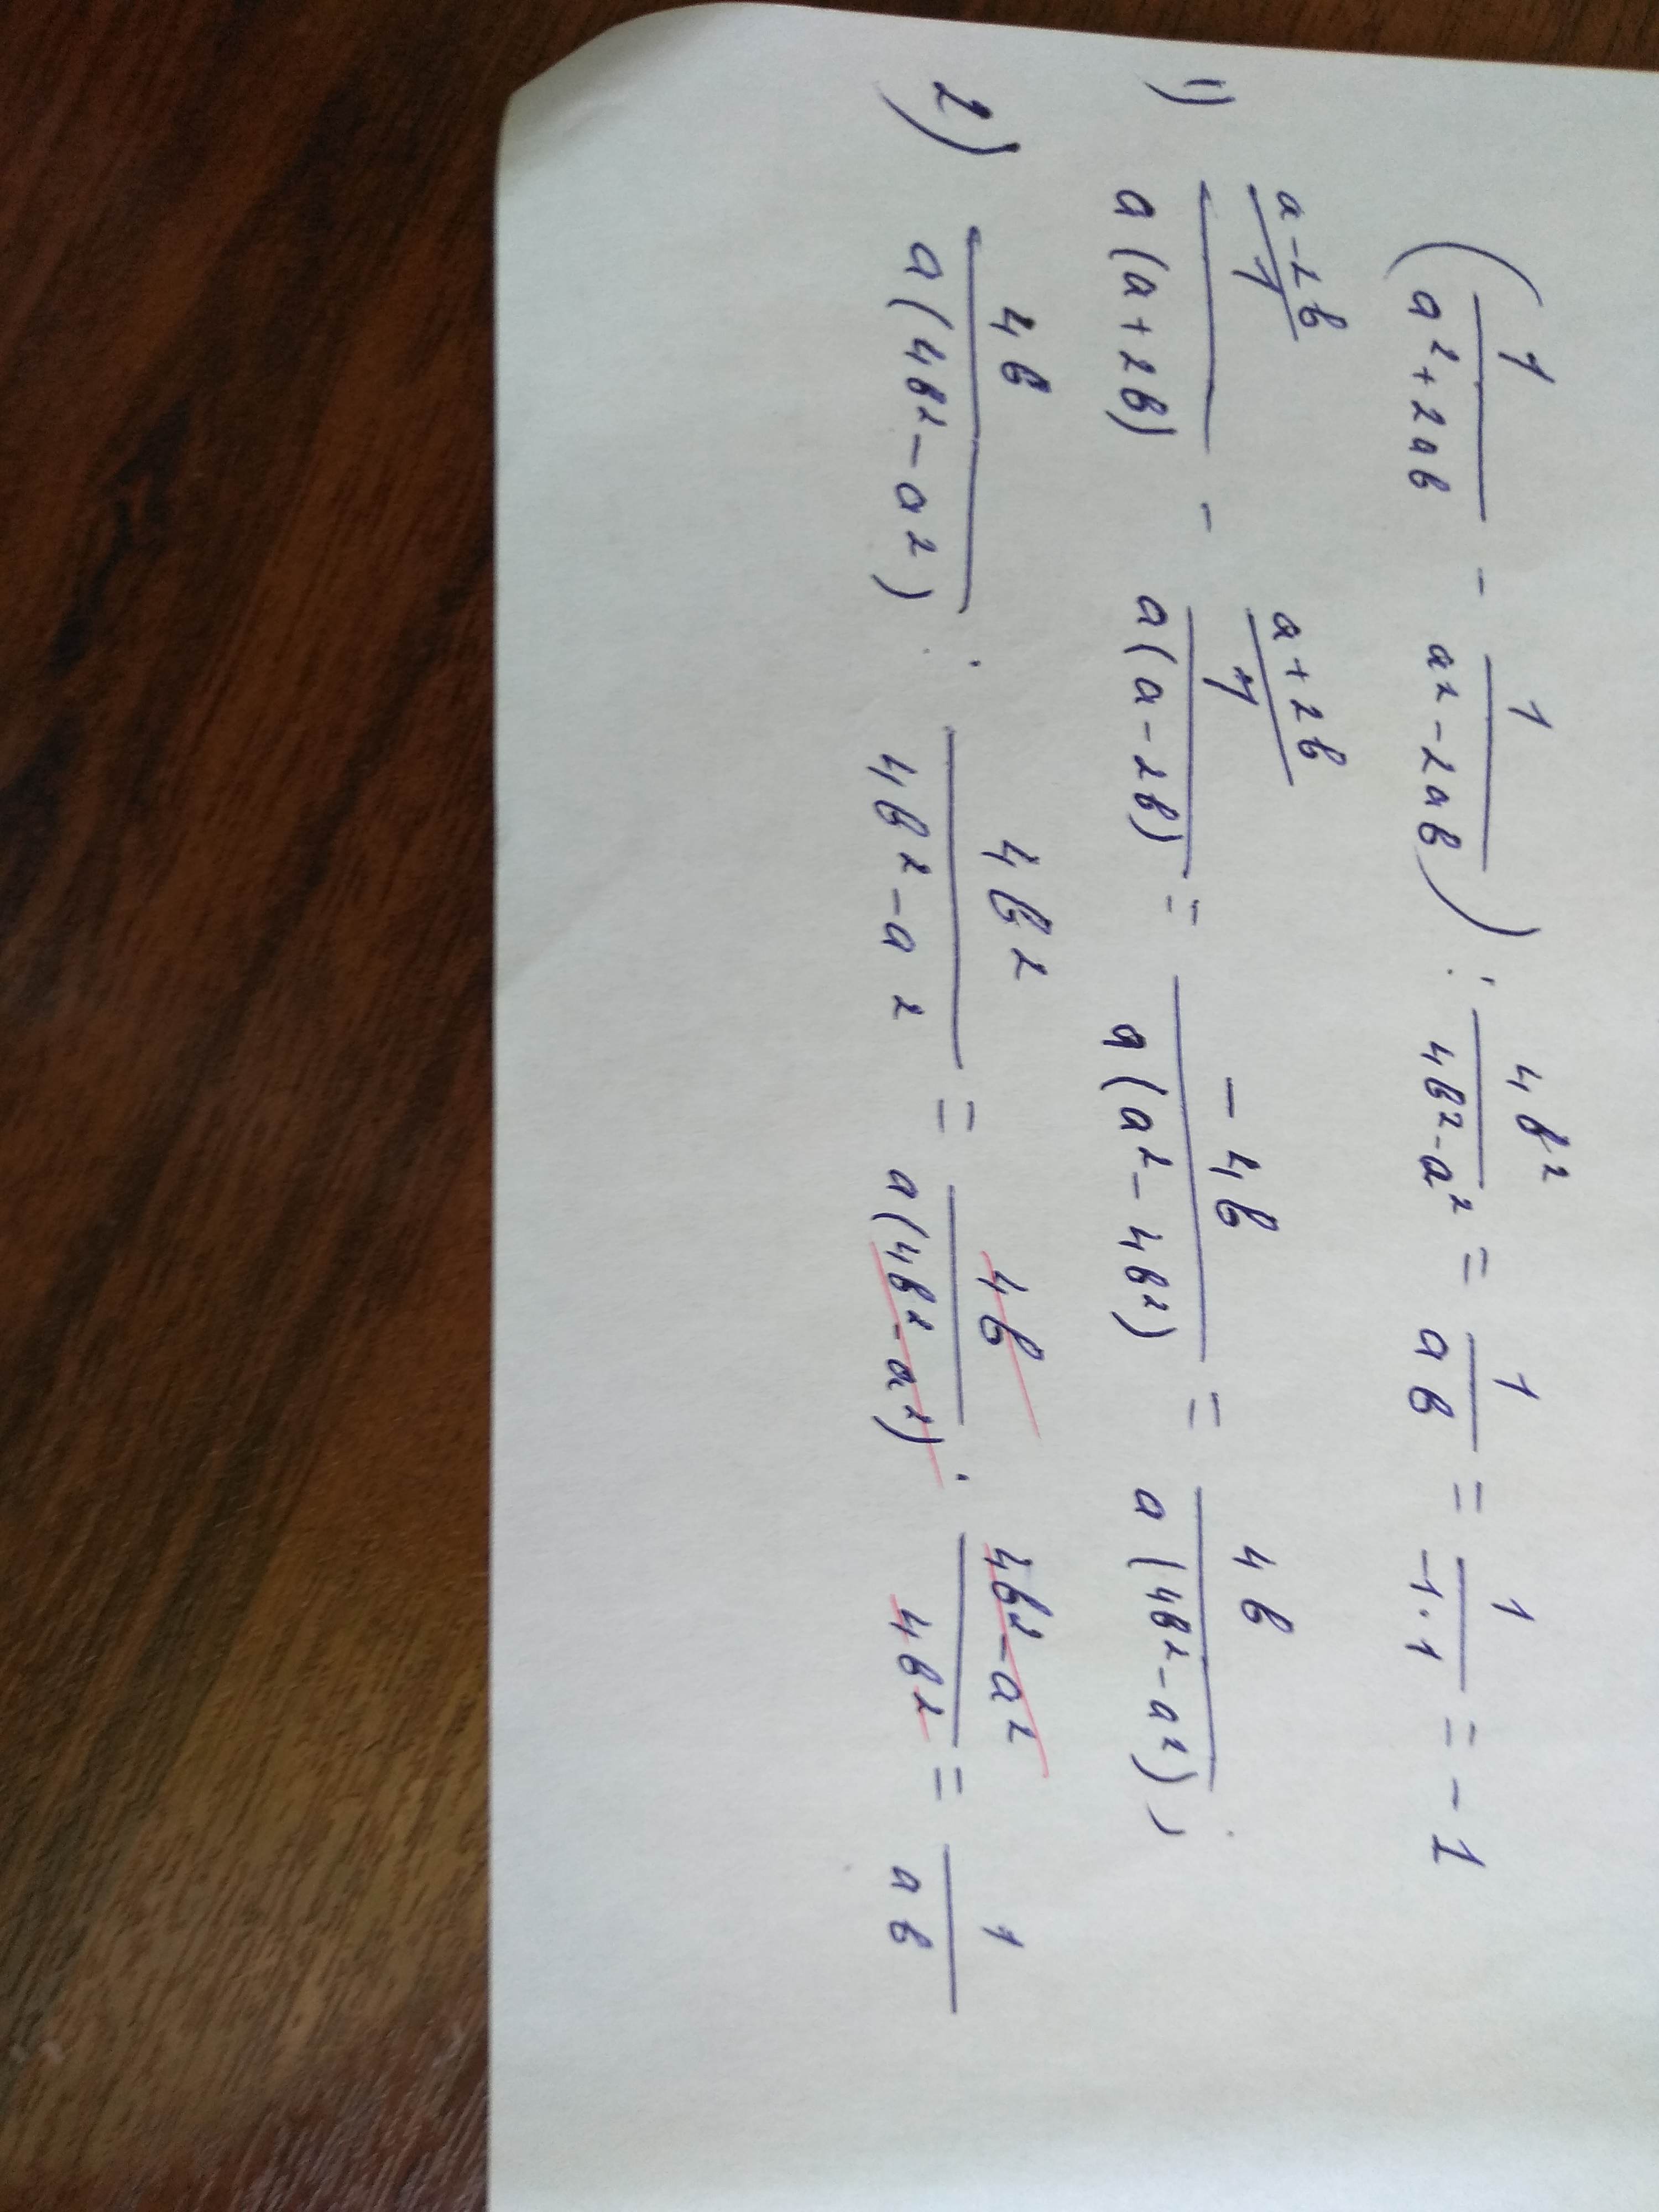 (1/(a²+2ab) - 1/(a²-2ab)) : 4b²/(4b²-a²) = 1/(ab) = 1/(-1·1) = -1
1) (a-2b)/1/(a(a+2b)) - (a+2b)/1/(a(a-2b)) = -4b/(a(a²-4b²)) = 4b/(a(4b²-a²)) ;
2) 4b/(a(4b²-a²)) : 4b²/(4b²-a²) = 4b/(a(4b²-a²)) · (4b²-a²)/(4b²) = 1/(ab)